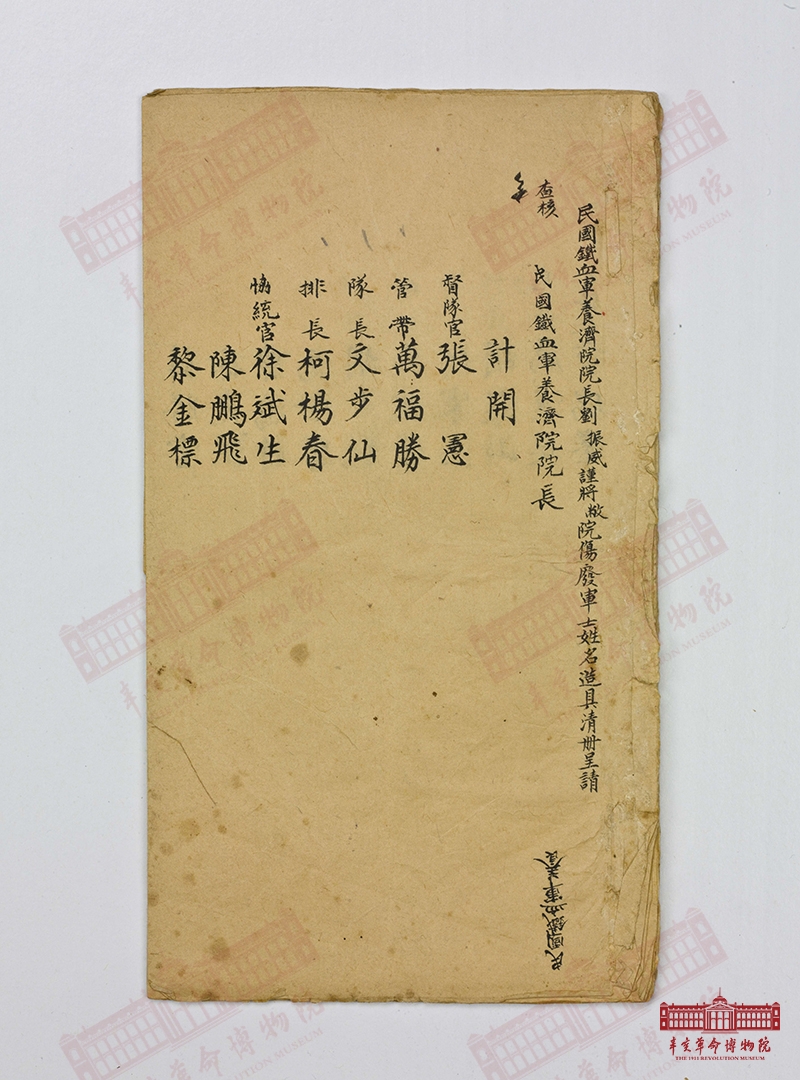 民國鐵血軍養濟院院長劉振威謹將敝院傷廢軍士姓名造具清册呈請
查核
民國鐵血軍養濟院院長
計開
督隊官張憲
管帶萬福勝
隊長文步仙
排長柯楊春
協統官徐斌生
陳鵬飛
黎金標
民國鐵血軍養
辛亥革命博物院
THE 1911 REVOLUTION MUSEUM